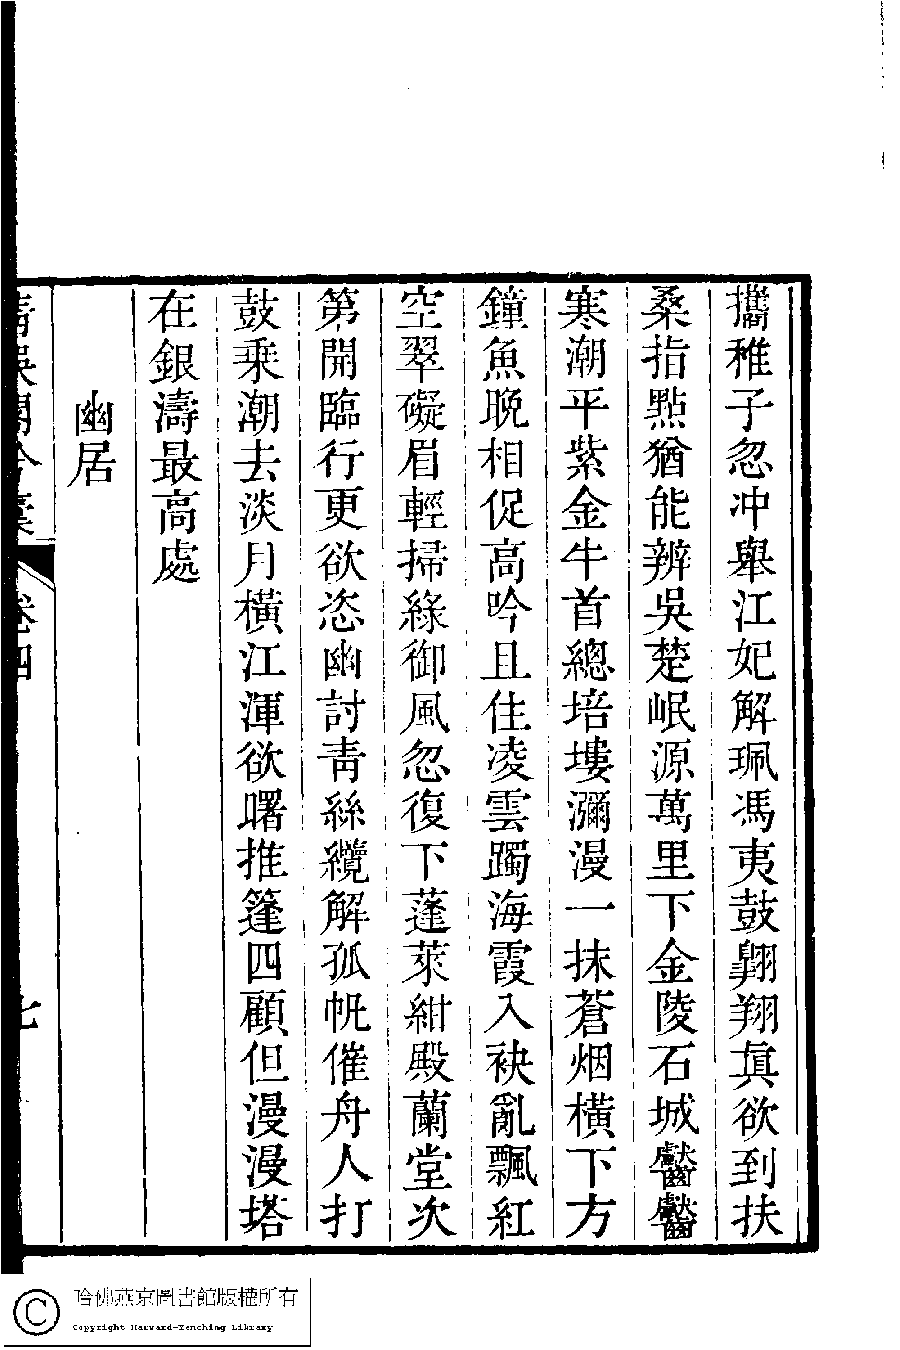 攜稚子忽冲舉江妃解珮馮夷鼓翺翔眞欲到扶
桑指點猶能辨吳楚岷源萬里下金陵石城巘巘
寒潮平紫金牛首總培塿瀰漫一抹蒼烟橫下方
鐘魚晚相促高吟且住凌雲躅海霞入袂亂飄紅
空翠礙眉輕掃綠御風忽復下蓬萊紺殿蘭堂次
第開臨行更欲恣幽討靑絲纜解孤帆催舟人打
鼓乘潮去淡月橫江渾欲曙推篷四顧但漫漫塔
在銀濤最高處
幽居
卷四
七
哈佛燕京圖書館版權所有
Copyright Harvard-Yenching Library